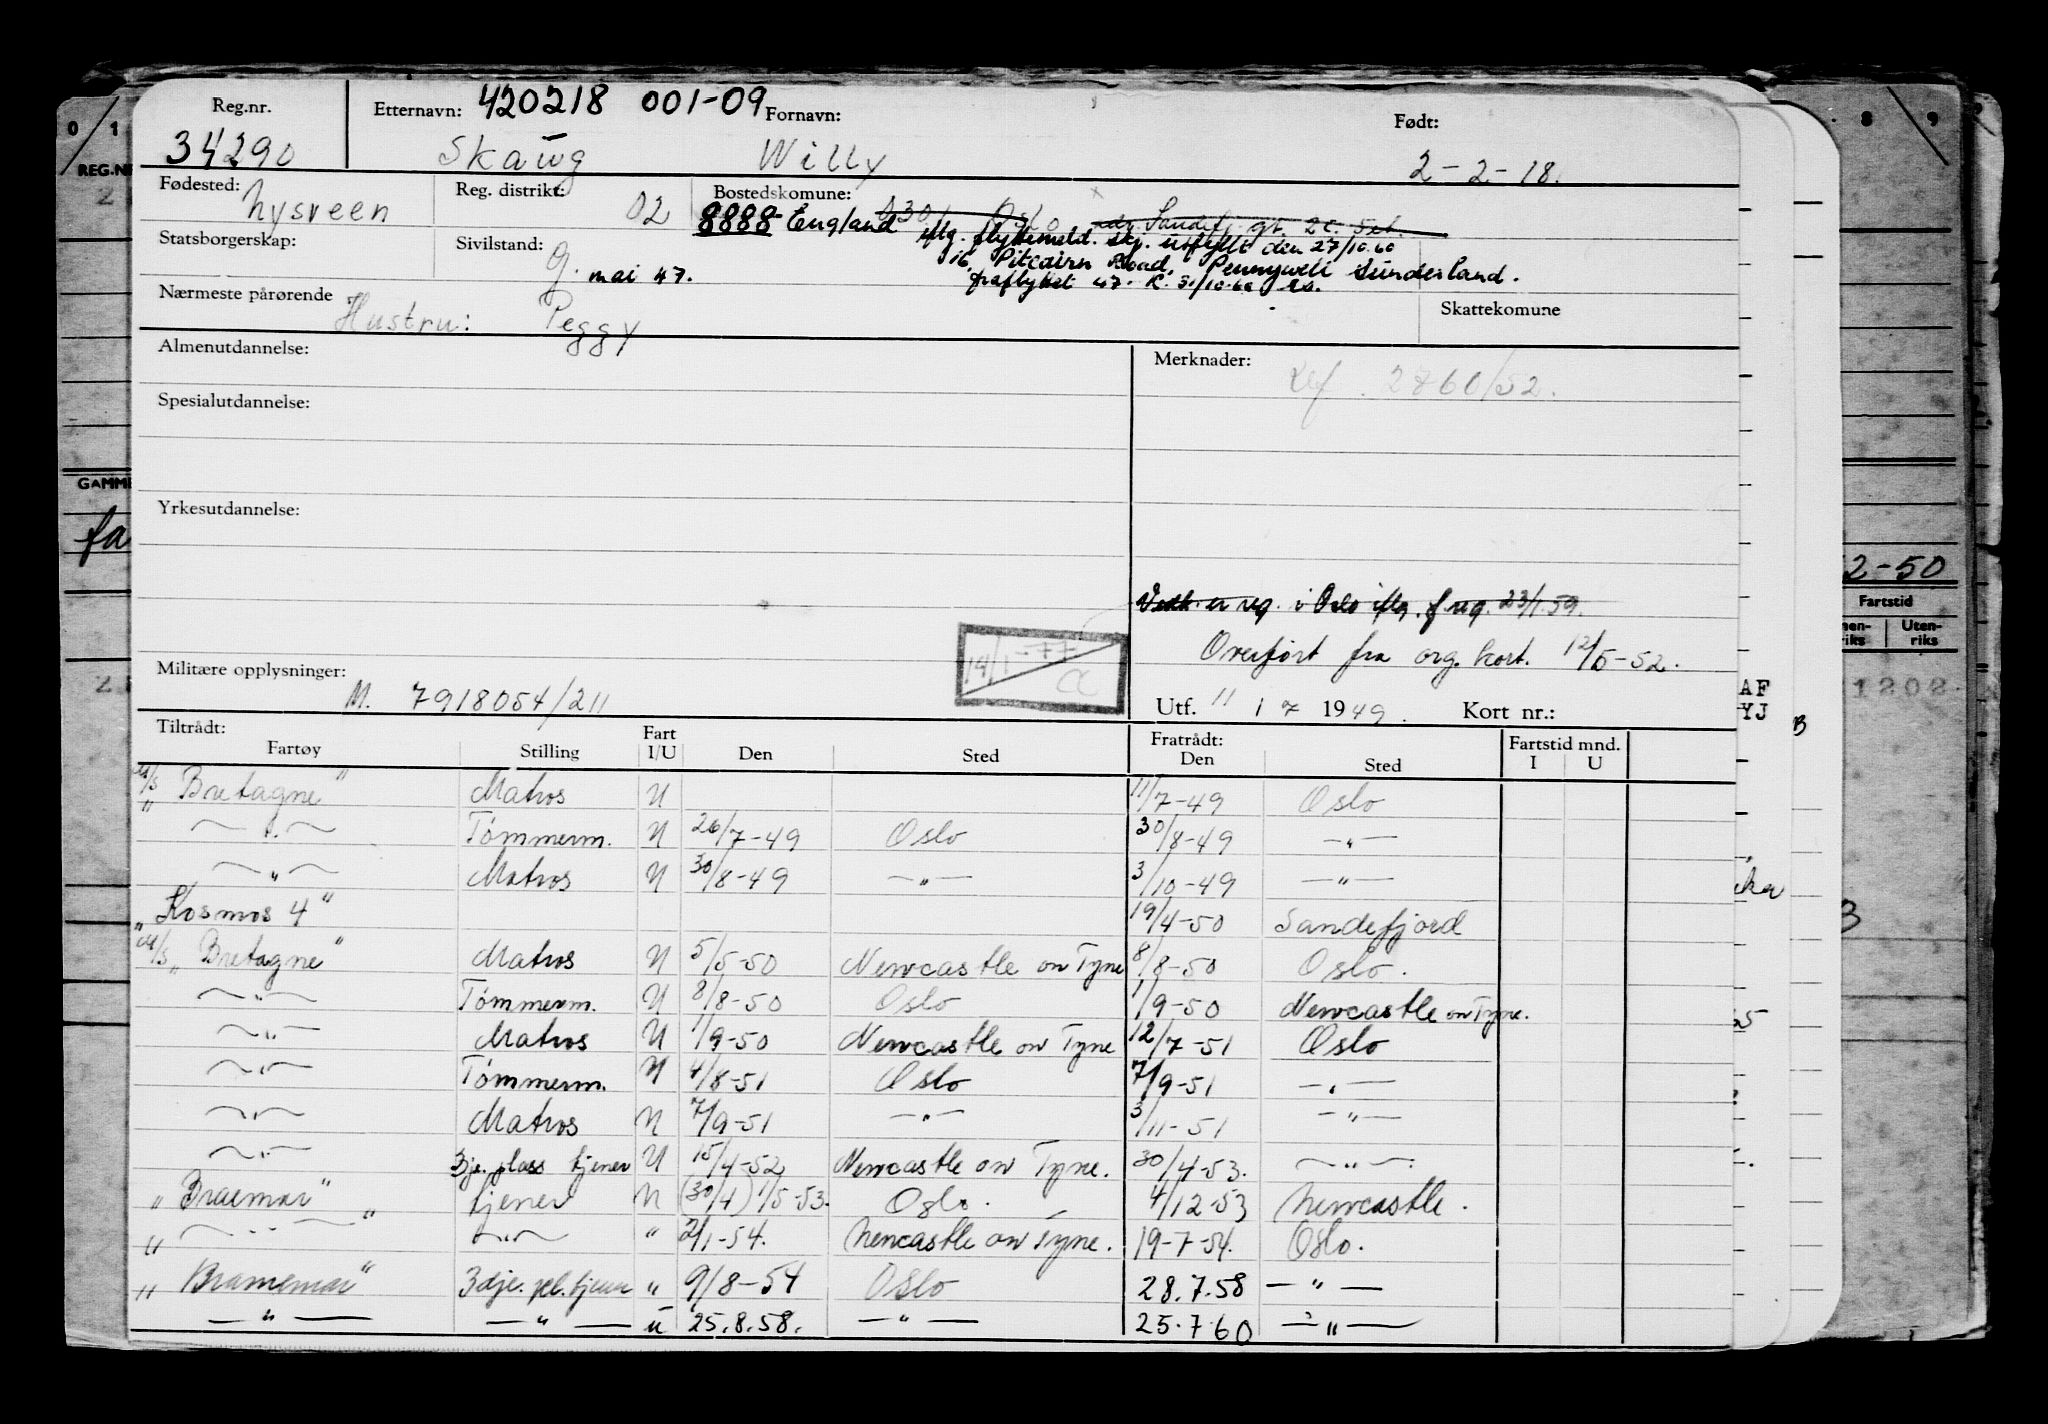 Reg.nr. Etternavn: 420218 001-09 Fornavn: Født:
34290 Skaug Willy 2-2-18.
Fødested: Reg. distrikt: Bostedskomune:
Nysveen 02 8888 England 030 Oslo adr. Sandefj. gt. 2c. 5et.
iflg. flyttemeld. skj. utfyllt den 27/10.60
Statsborgerskap: Sivilstand:
g. mai 47. 16 Pitcairn Road, Pennywell Sunderland.
fraflyttet 47. R. 31/10.60
Nærmeste pårørende Skattekomune
Hustru: Peggy
Almenutdannelse: Merknader:
2860/52.
Spesialutdannelse:
Yrkesutdannelse:
Vedk. er reg. i Oslo iflg. f.reg. 23/1.59.
14/1-77
Overført fra org. kort. 12/5-52.
Militære opplysninger:
M. 7918054/211 Utf. 11 / 7 1949. Kort nr.:
Tiltrådt: Fart Fratrådt: Fartstid mnd.
Fartøy Stilling I/U Den Sted Den Sted I U
M/S "Bretagne" Matros U 11/7-49 Oslo
—"— Tømmerm. U 26/7-49 Oslo 30/8-49 —"—
—"— Matros U 30/8-49 —"— 3/10-49 —"—
"Kosmos 4" 19/4-50 Sandefjord
M/S "Bretagne" Matros U 5/5-50 Newcastle on Tyne 8/8-50 Oslo.
—"— Tømmerm. U 8/8-50 Oslo 1/9-50 Newcastle on Tyne.
—"— Matros U 1/9-50 Newcastle on Tyne 12/7-51 Oslo
—"— Tømmerm. U 4/8-51 Oslo 7/9-51 —"—
—"— Matros U 7/9-51 —"— 3/11-51 —"—
—"— 3je. plass tjener U 15/4-52 Newcastle on Tyne. 30/4-53. —"—
"Braemar" tjener U (30/4) 1/5-53. Oslo. 4/12-53 Newcastle.
" —"— " —"— " 2/1-54. Newcastle on Tyne. 19-7-54. Oslo.
" Bramemar" 3dje. pl. tjener " 9/8-54 Oslo 28.7.58 —"—
—"— —"— u 25.8.58. —"— 25.7.60 —"—
0/1
REG.NR
GAMME
fa
8 9
2-50
Fartstid
nen-riks Uten-riks
1202
AF
YJ
B